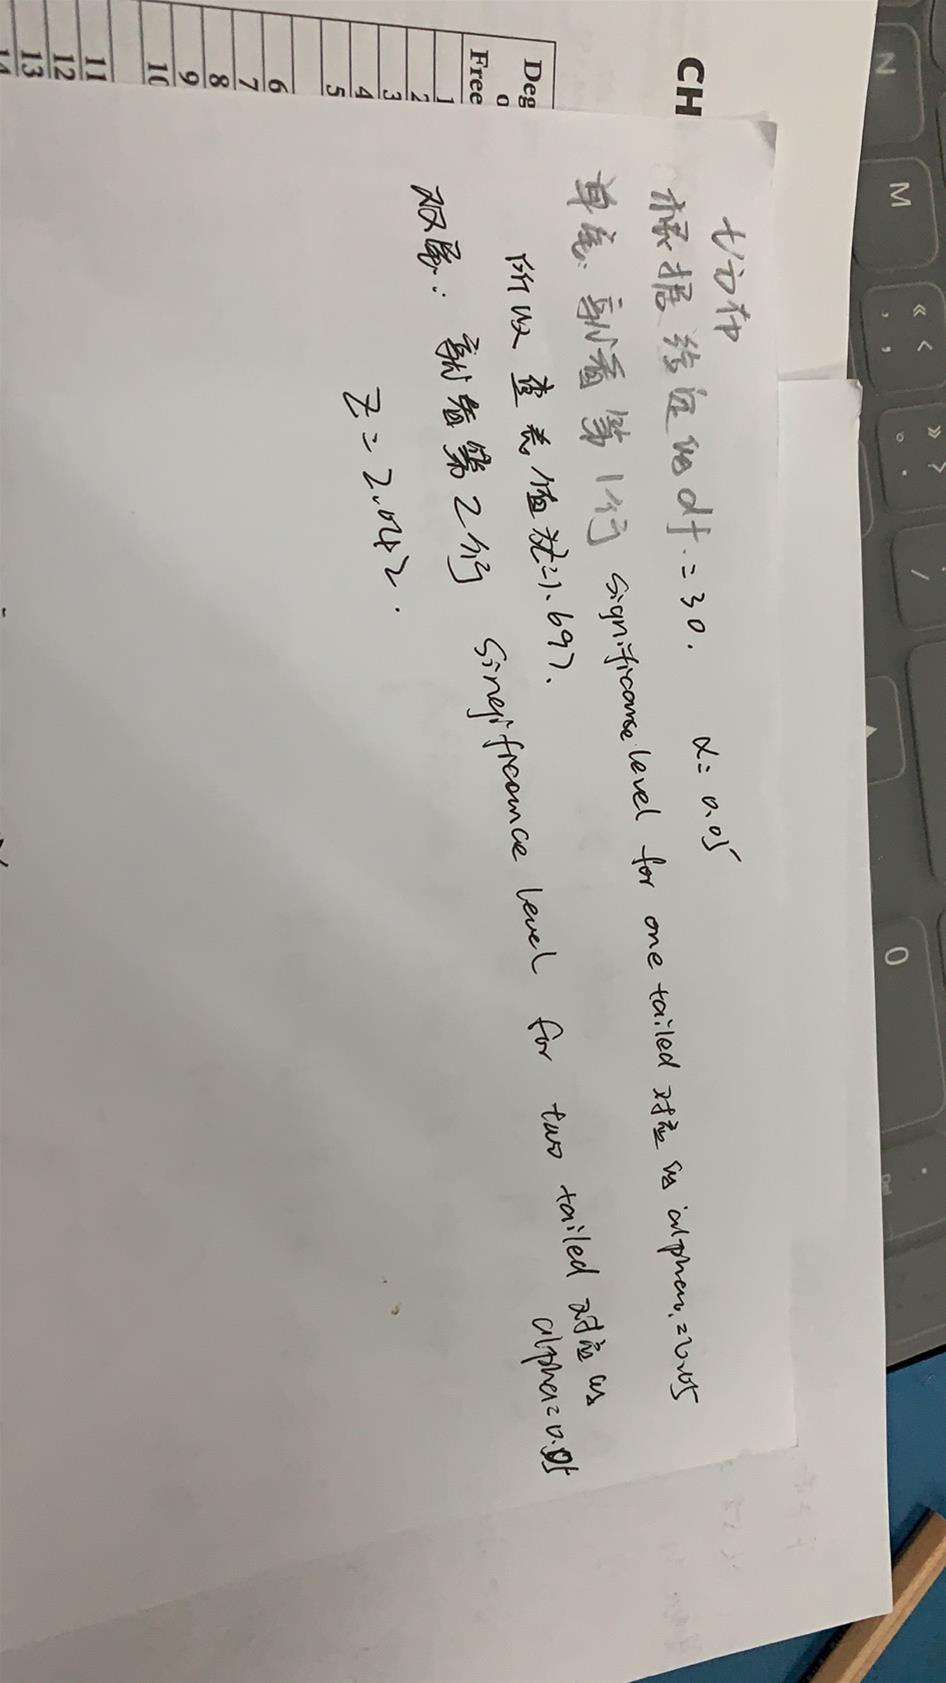 CH
Deg
Free
1
2
3
4
5
6
7
8
9
10
11
12
13
14
t分布
根据给定的df.=30. α=0.05
单尾: 就看第1行 significance level for one tailed 对应的 alpha.=0.05
所以查表值就=1.697.
双尾: 就看第2行 Singificance level for two tailed 对应的
alpha=0.05
Z=2.042.
N
M
« <
» >
/
0
.
Del